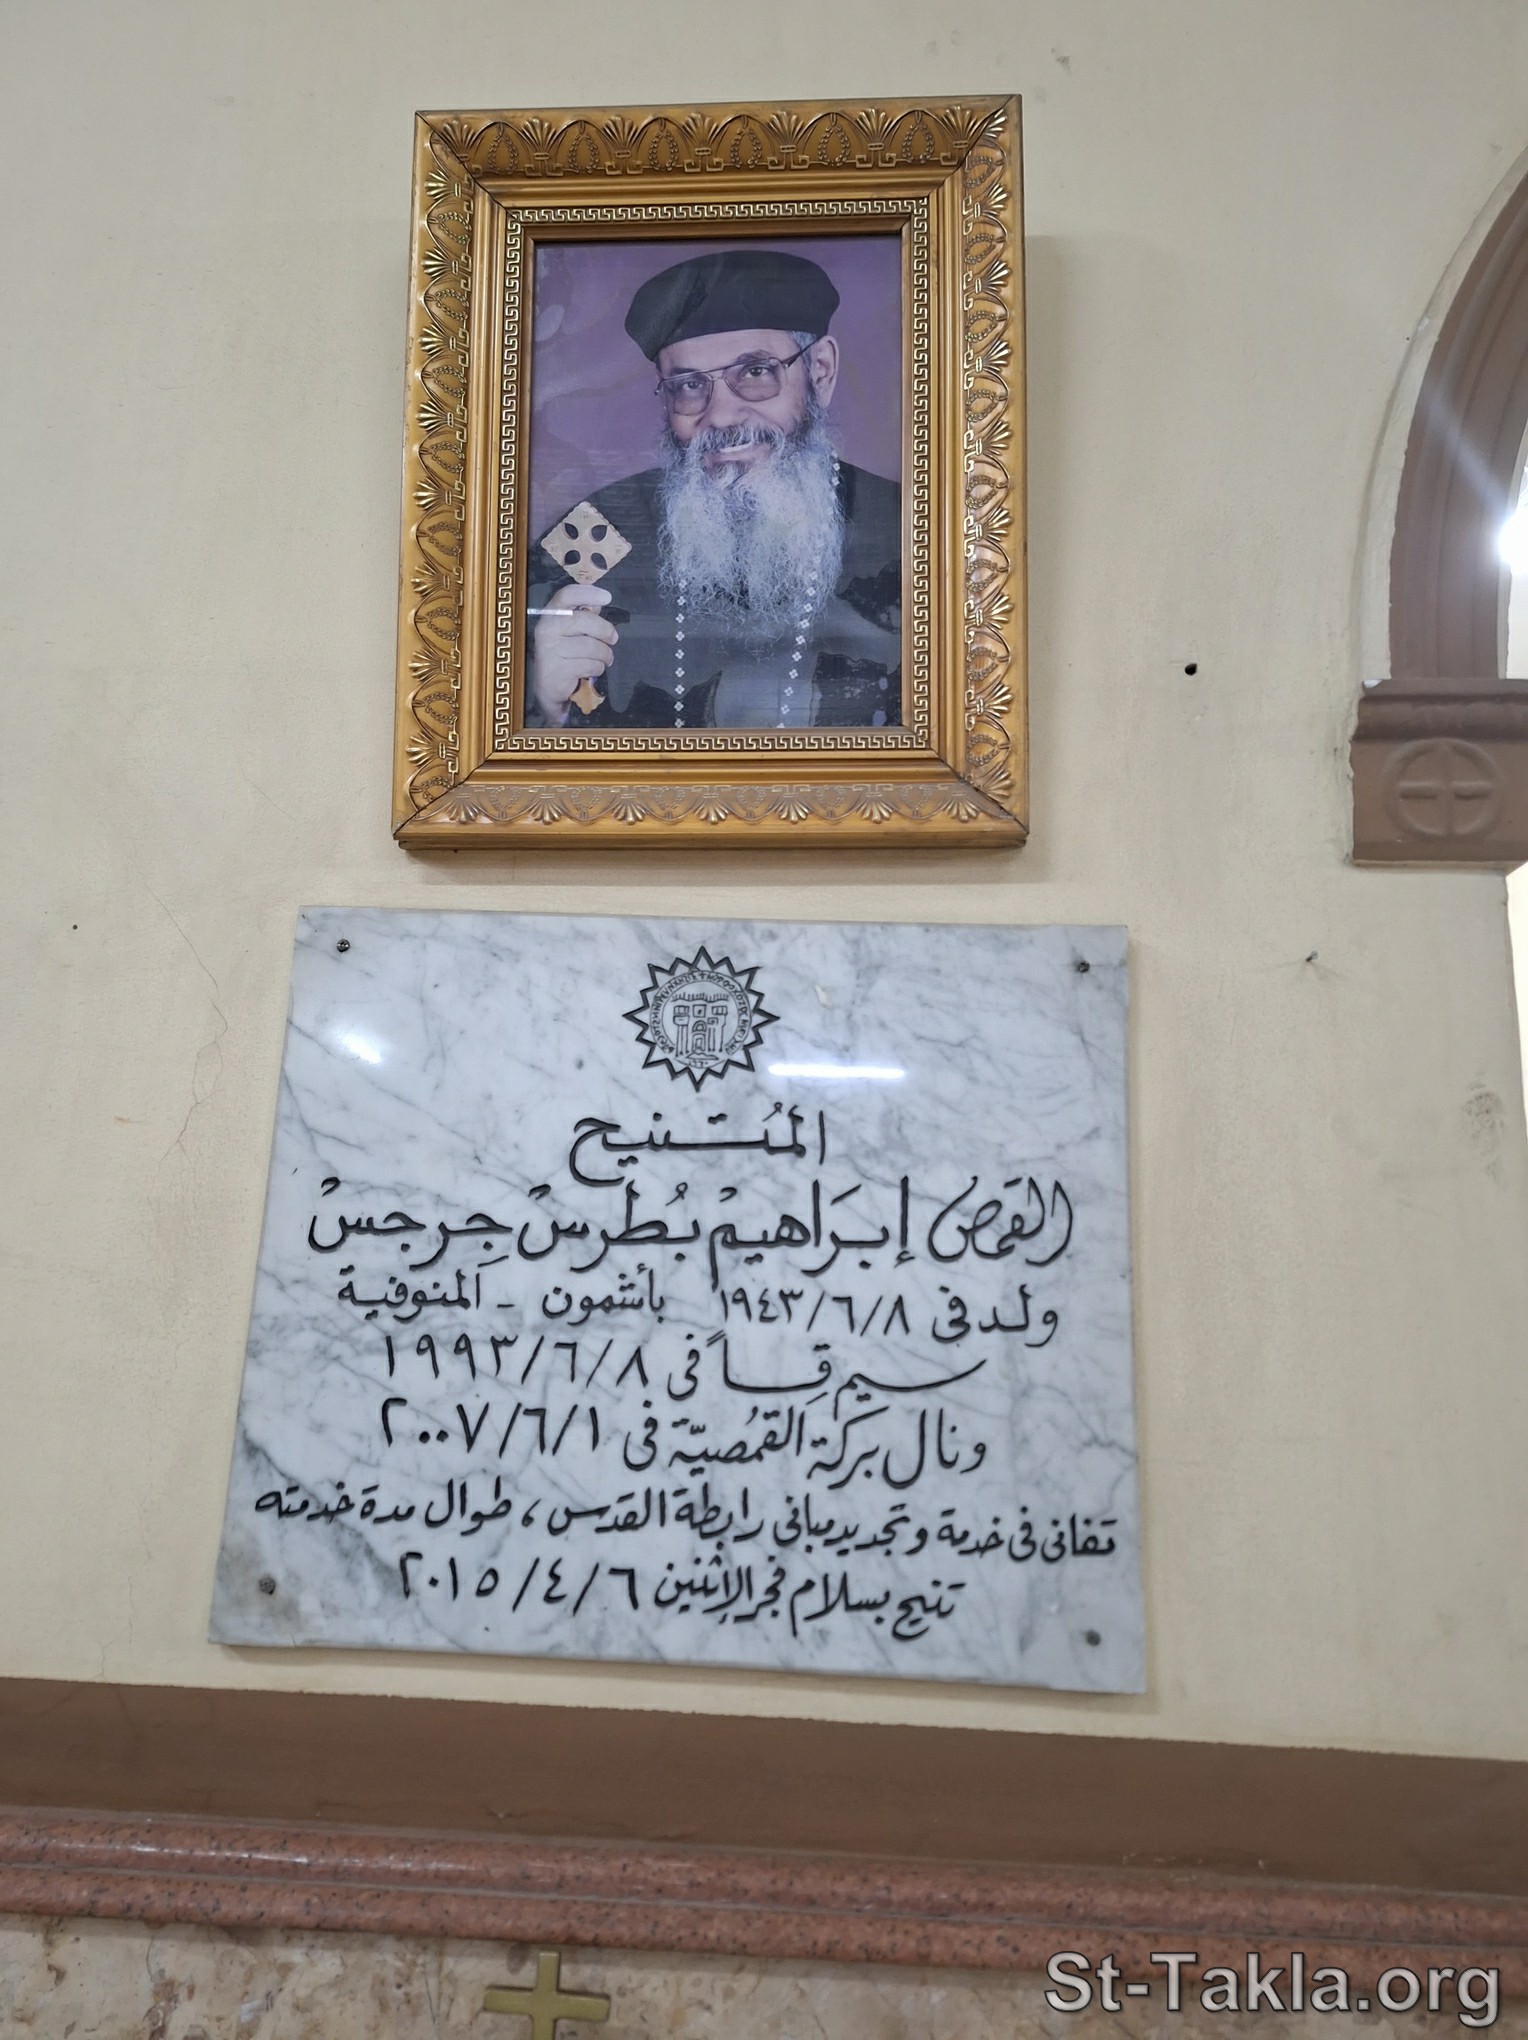 المُتنيح
القمص إبرَاهيمْ بُطرسْ جِرجسْ
ولد فى ٨/٦/١٩٤٣ بأشمون - المنوفية
سيم قِساً فى ٨/٦/١٩٩٣
ونال بركة القمُصيّة فى ١/٦/٢٠٠٧
تفانى فى خدمة وتجديد مبانى رابطة القدس ، طوال مدة خدمته
تنيح بسلام فجر الإثنين ٦/٤/٢٠١٥
St-Takla.org